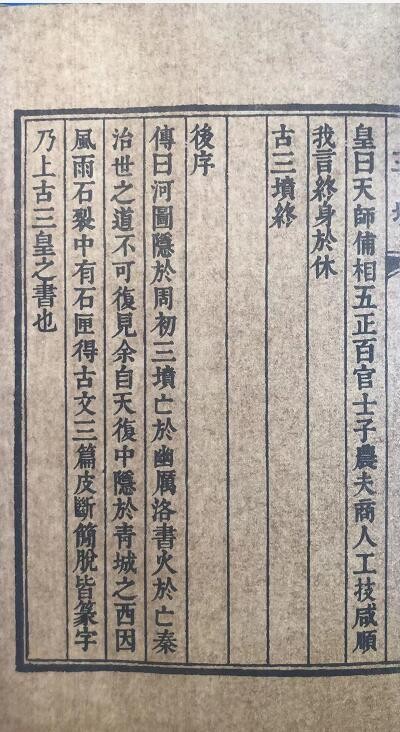 皇曰天師俌相五正百官士子農夫商人工技咸順
我言終身於休
古三墳終
後序
傳曰河圖隱於周初三墳亡於幽厲洛書火於亡秦
治世之道不可復見余自天復中隱於青城之西因
風雨石裂中有石匣得古文三篇皮斷簡脫皆篆字
乃上古三皇之書也